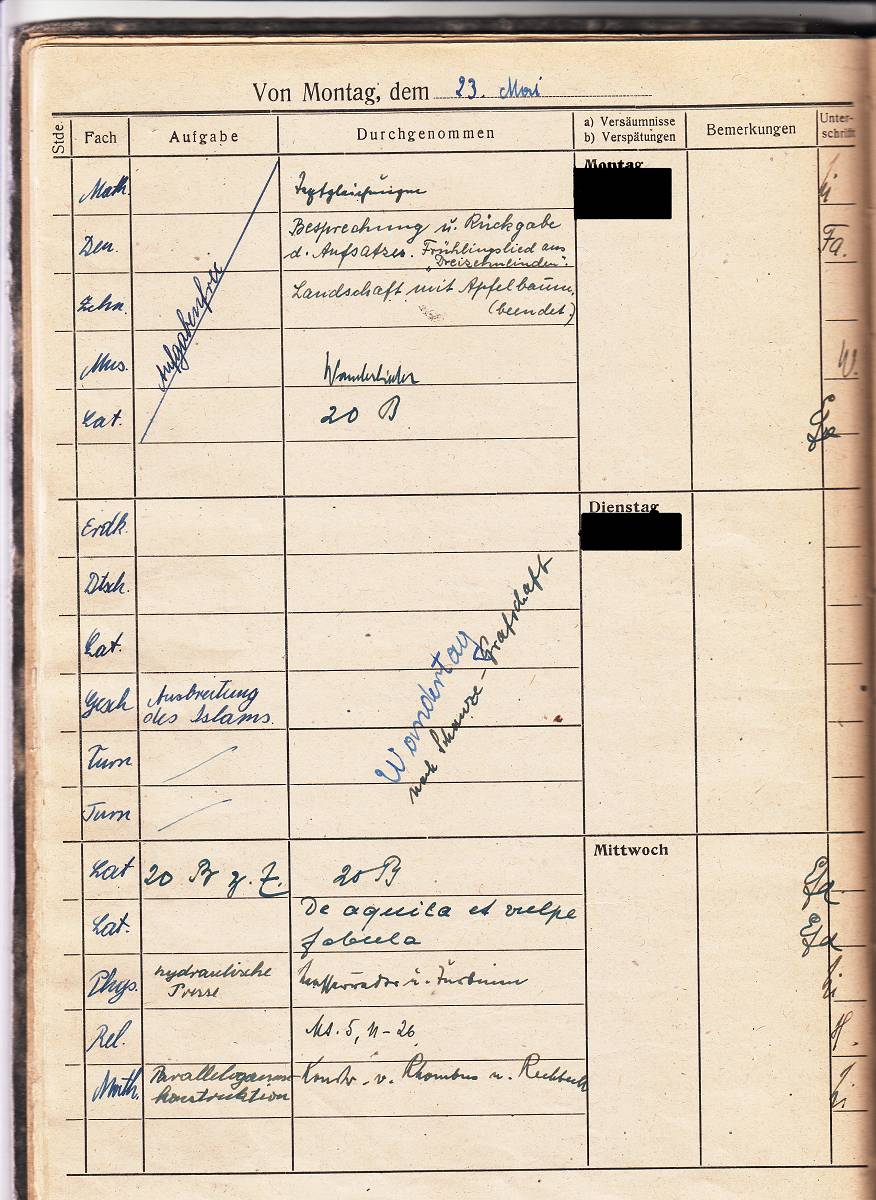 Von Montag, dem 23. Mai
Stde.
Fach
Aufgabe
Durchgenommen
a) Versäumnisse
b) Verspätungen
Bemerkungen
Unter-
schrift
Montag
Math.
Deu.
Besprechung u. Rückgabe
d. Aufsatzes. Frühlingslied aus
"Dreizehnlinden".
Aufgabenfrei
Zchn.
Landschaft mit Apfelbaum.
(beendet)
Fa.
Mus.
Wanderlieder
W.
Lat.
20 B
Dienstag
Erdk.
Dtsch.
Lat.
Gesch
Ausbreitung
des Islams.
Turn
Turn
Wandertag
nach Schanze - Grafschaft
Mittwoch
Lat
20 B z. T.
20 B
Lat.
De aquila et vulpe
fabula
Phys.
hydraulische
Presse
Wasserräder u. Turbinen
Rel.
Mt. 5, 11-26
H.
Math.
Parallelogramm-
konstruktion
Konstr. v. Rhombus u. Rechteck